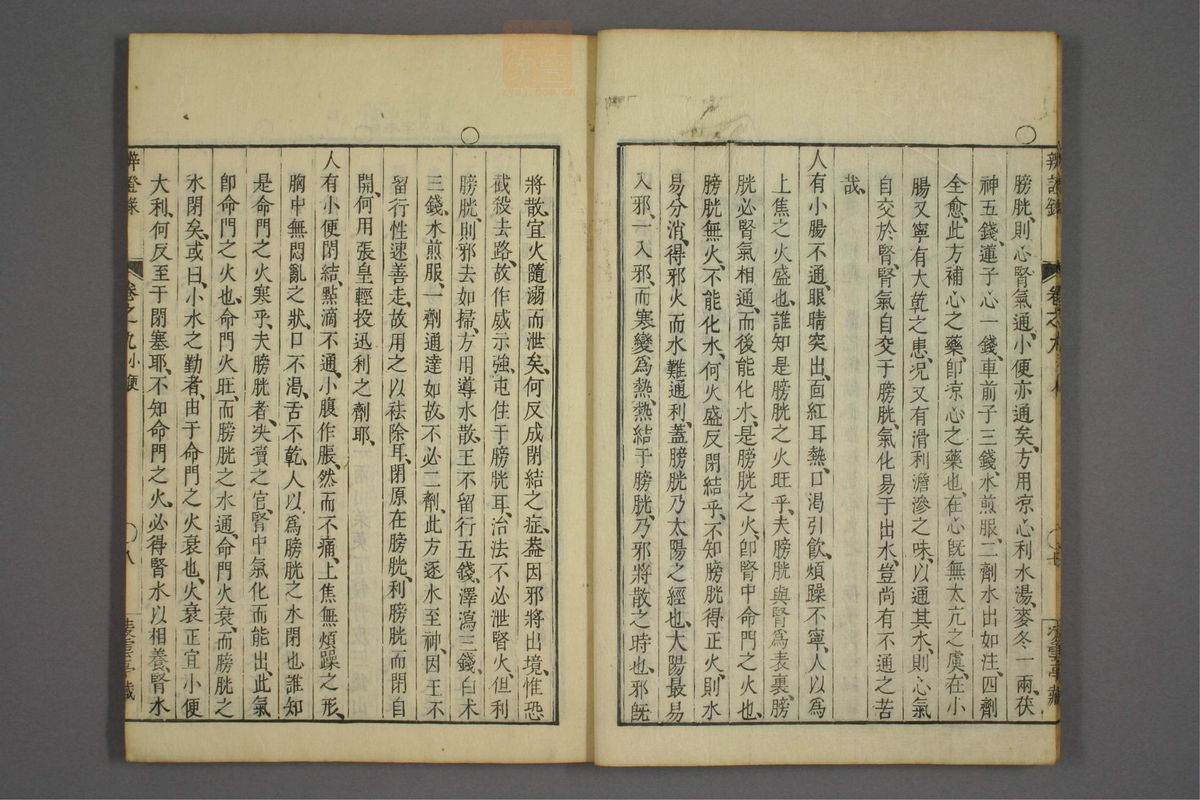 膀胱、則心腎氣通、小便亦通矣、方用凉心利水湯、麥冬一兩茯
神五錢、蓮子心一錢、車前子三錢、水煎服、二劑水出如注、四劑
全愈、此方補心之藥、卽凉心之藥也、在心旣無太亢之虞、在小
腸又寧有大乾之患、况又有滑利澹滲之味、以通其水、則心氣
自交於腎、腎氣自交于膀胱、氣化易于出水、豈尚有不通之苦
哉、
人有小腸不通、眼睛突出、面紅耳熱、口渴引飲、煩躁不寧、人以爲
上焦之火盛也、誰知是膀胱之火旺乎、夫膀胱與腎爲表裏、膀
胱必腎氣相通、而後能化水、是膀胱之火、卽腎中命門之火也、
膀胱無火、不能化水、何火盛反閉結乎、不知膀胱得正火、則水
易分消、得邪火而水難通利、蓋膀胱乃太陽之經也、大陽最易
入邪、一入邪、而寒變爲熱、熱結于膀胱、乃邪將散之時也、邪旣
將散、宜火隨溺而泄矣、何反成閉結之症、葢因邪將出境、惟恐
截殺去路、故作威示强、屯住于膀胱耳、治法不必泄腎火、但利
膀胱、則邪去如掃、方用導水散、王不留行五錢、澤瀉三錢、白术
三錢、水煎服、一劑通達如故、不必二劑、此方逐水至神、因王不
留行性速善走、故用之以祛除耳、閉原在膀胱、利膀胱而閉自
開、何用張皇輕投迅利之劑耶、
人有小便閉結、點滴不通、小腹作脹、然而不痛、上焦無煩躁之形、
胸中無悶亂之狀、口不渴、舌不乾、人以爲膀胱之水閉也、誰知
是命門之火寒乎、夫膀胱者、決瀆之官、腎中氣化而能出、此氣
卽命門之火也、命門火旺、而膀胱之水通、命門火衰、而膀胱之
水閉矣、或曰、小水之勤者、由于命門之火衰也、火衰正宜小便
大利、何反至于閉塞耶、不知命門之火、必得腎水以相養、腎水
辨證錄 卷之九 小便 八